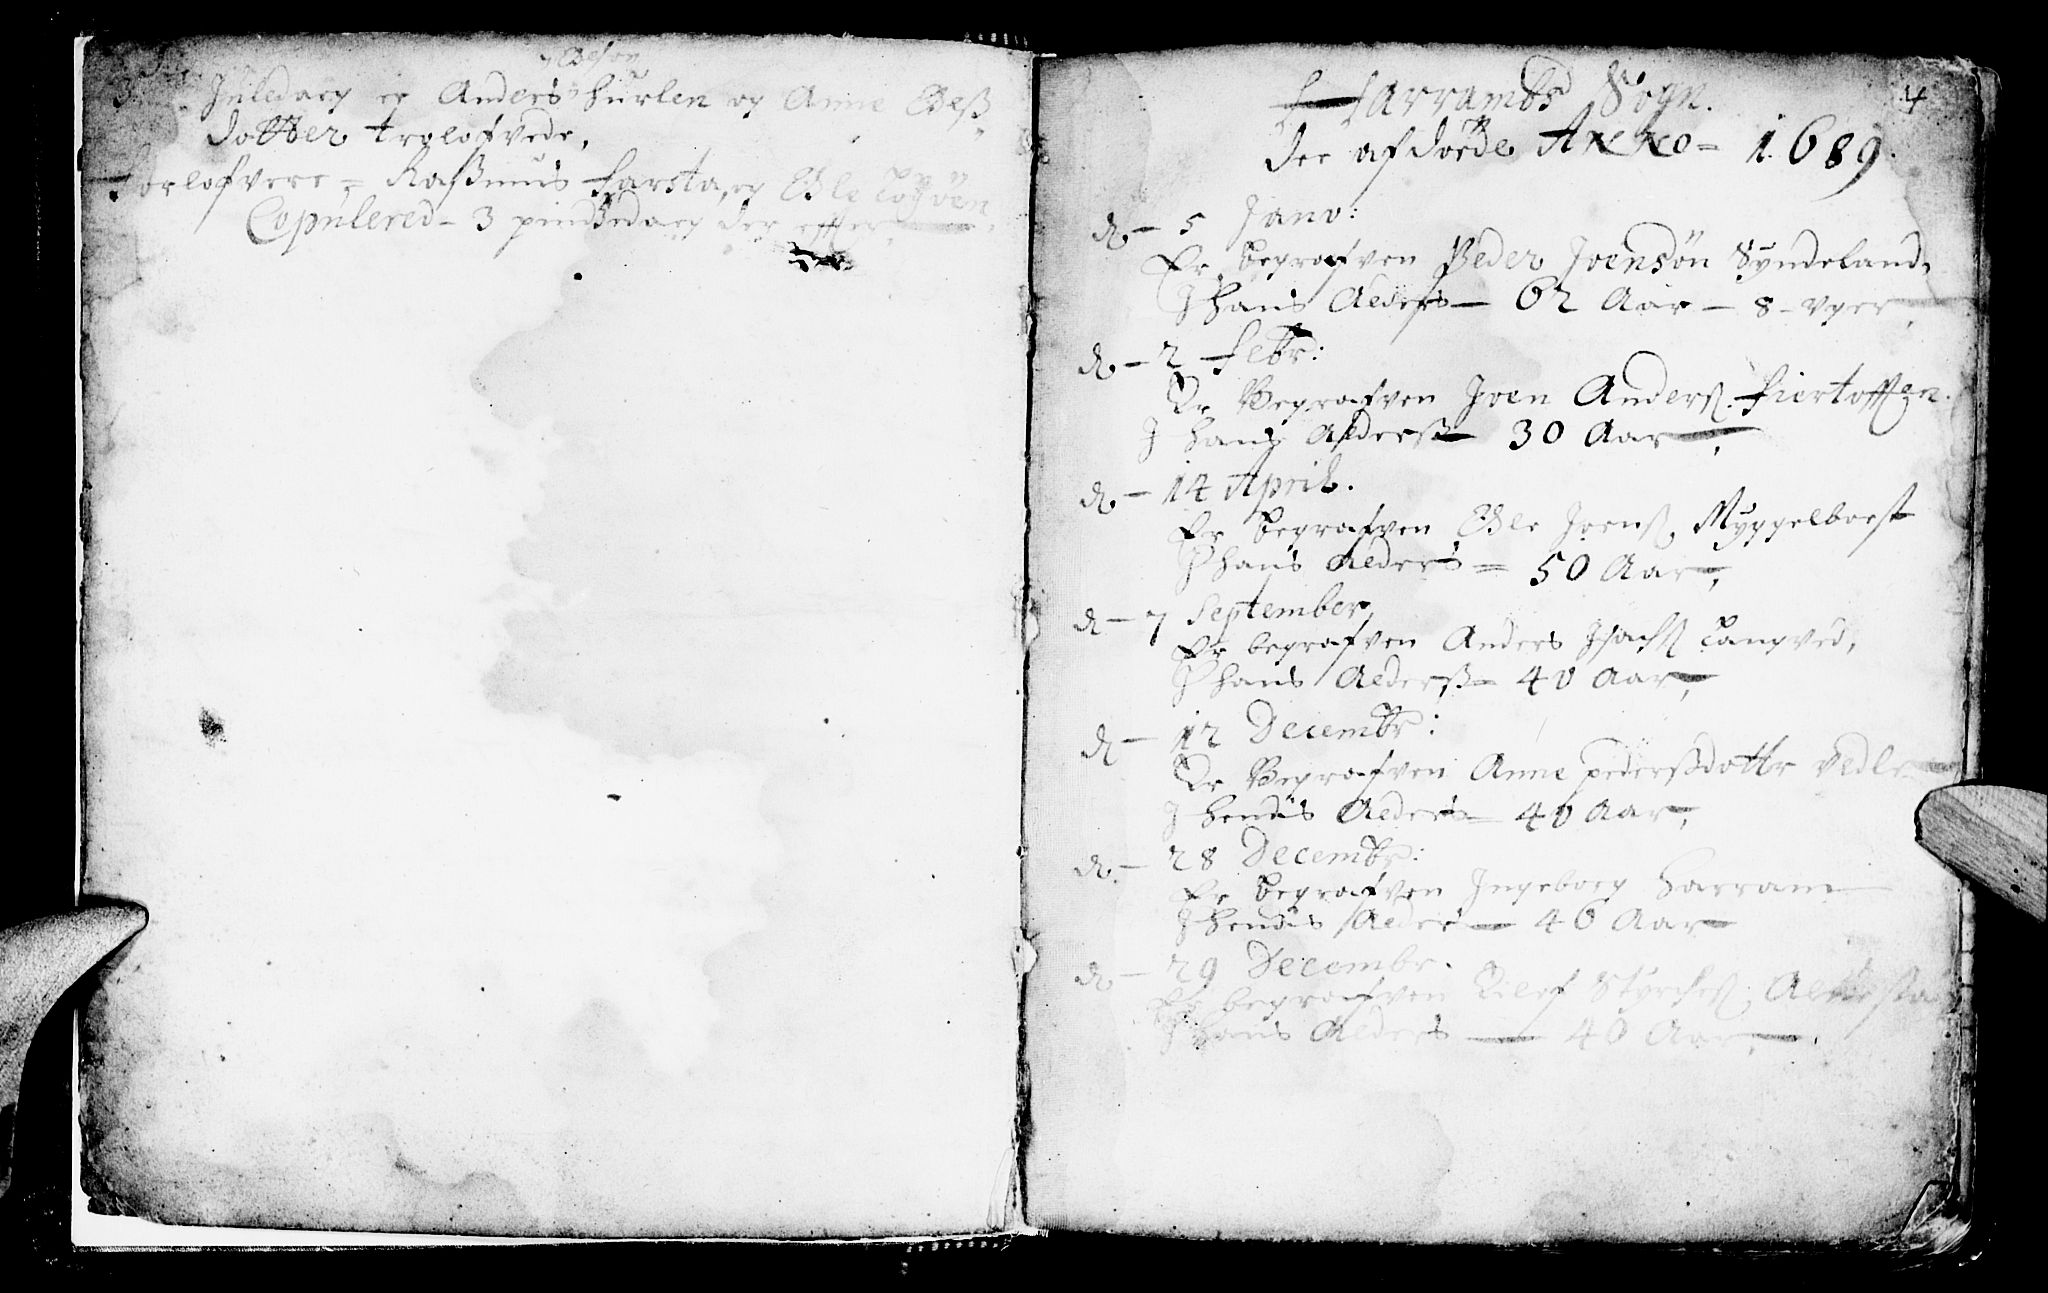 Olesøn
3 Juledaeg er Anders Hurlen og Anne Oleß
dotter trolofvede,
Forlofvere = Raßmus Farsta, og Ole
Copulered - 3 pindsedaeg der effter
4
Harrambs Sogn.
dee afdøde Anno = 1689.
d. - 5 Janv:
Er begrafven Peder Joensøn Syndeland,
J hans Alders - 62 Aar - 8 - vger,
d. - 2 Febr:
Er Begrafven Joen Anderß. Fiertofften.
J hans Alderß 30 Aar,
d. - 14 April.
Er begrafven Ole Joenß. Myggelboest
J hans Alders = 50 Aar,
d - 7 September,
Er begrafven Anders Jsachß Tangved,
J hans Alderß = 40 Aar,
d - 12 Decembr:
Er Begrafven Anne pederßdottr Vedle
J hendis Alders = 40 Aar,
d. - 28 Decembr:
Er begrafven Jngeboeg Harram
J hendis Alder - 46 Aar
d. - 29 Decembr.
Er begrafven Elef Styrcheß.
J hans Alders - 40 Aar,